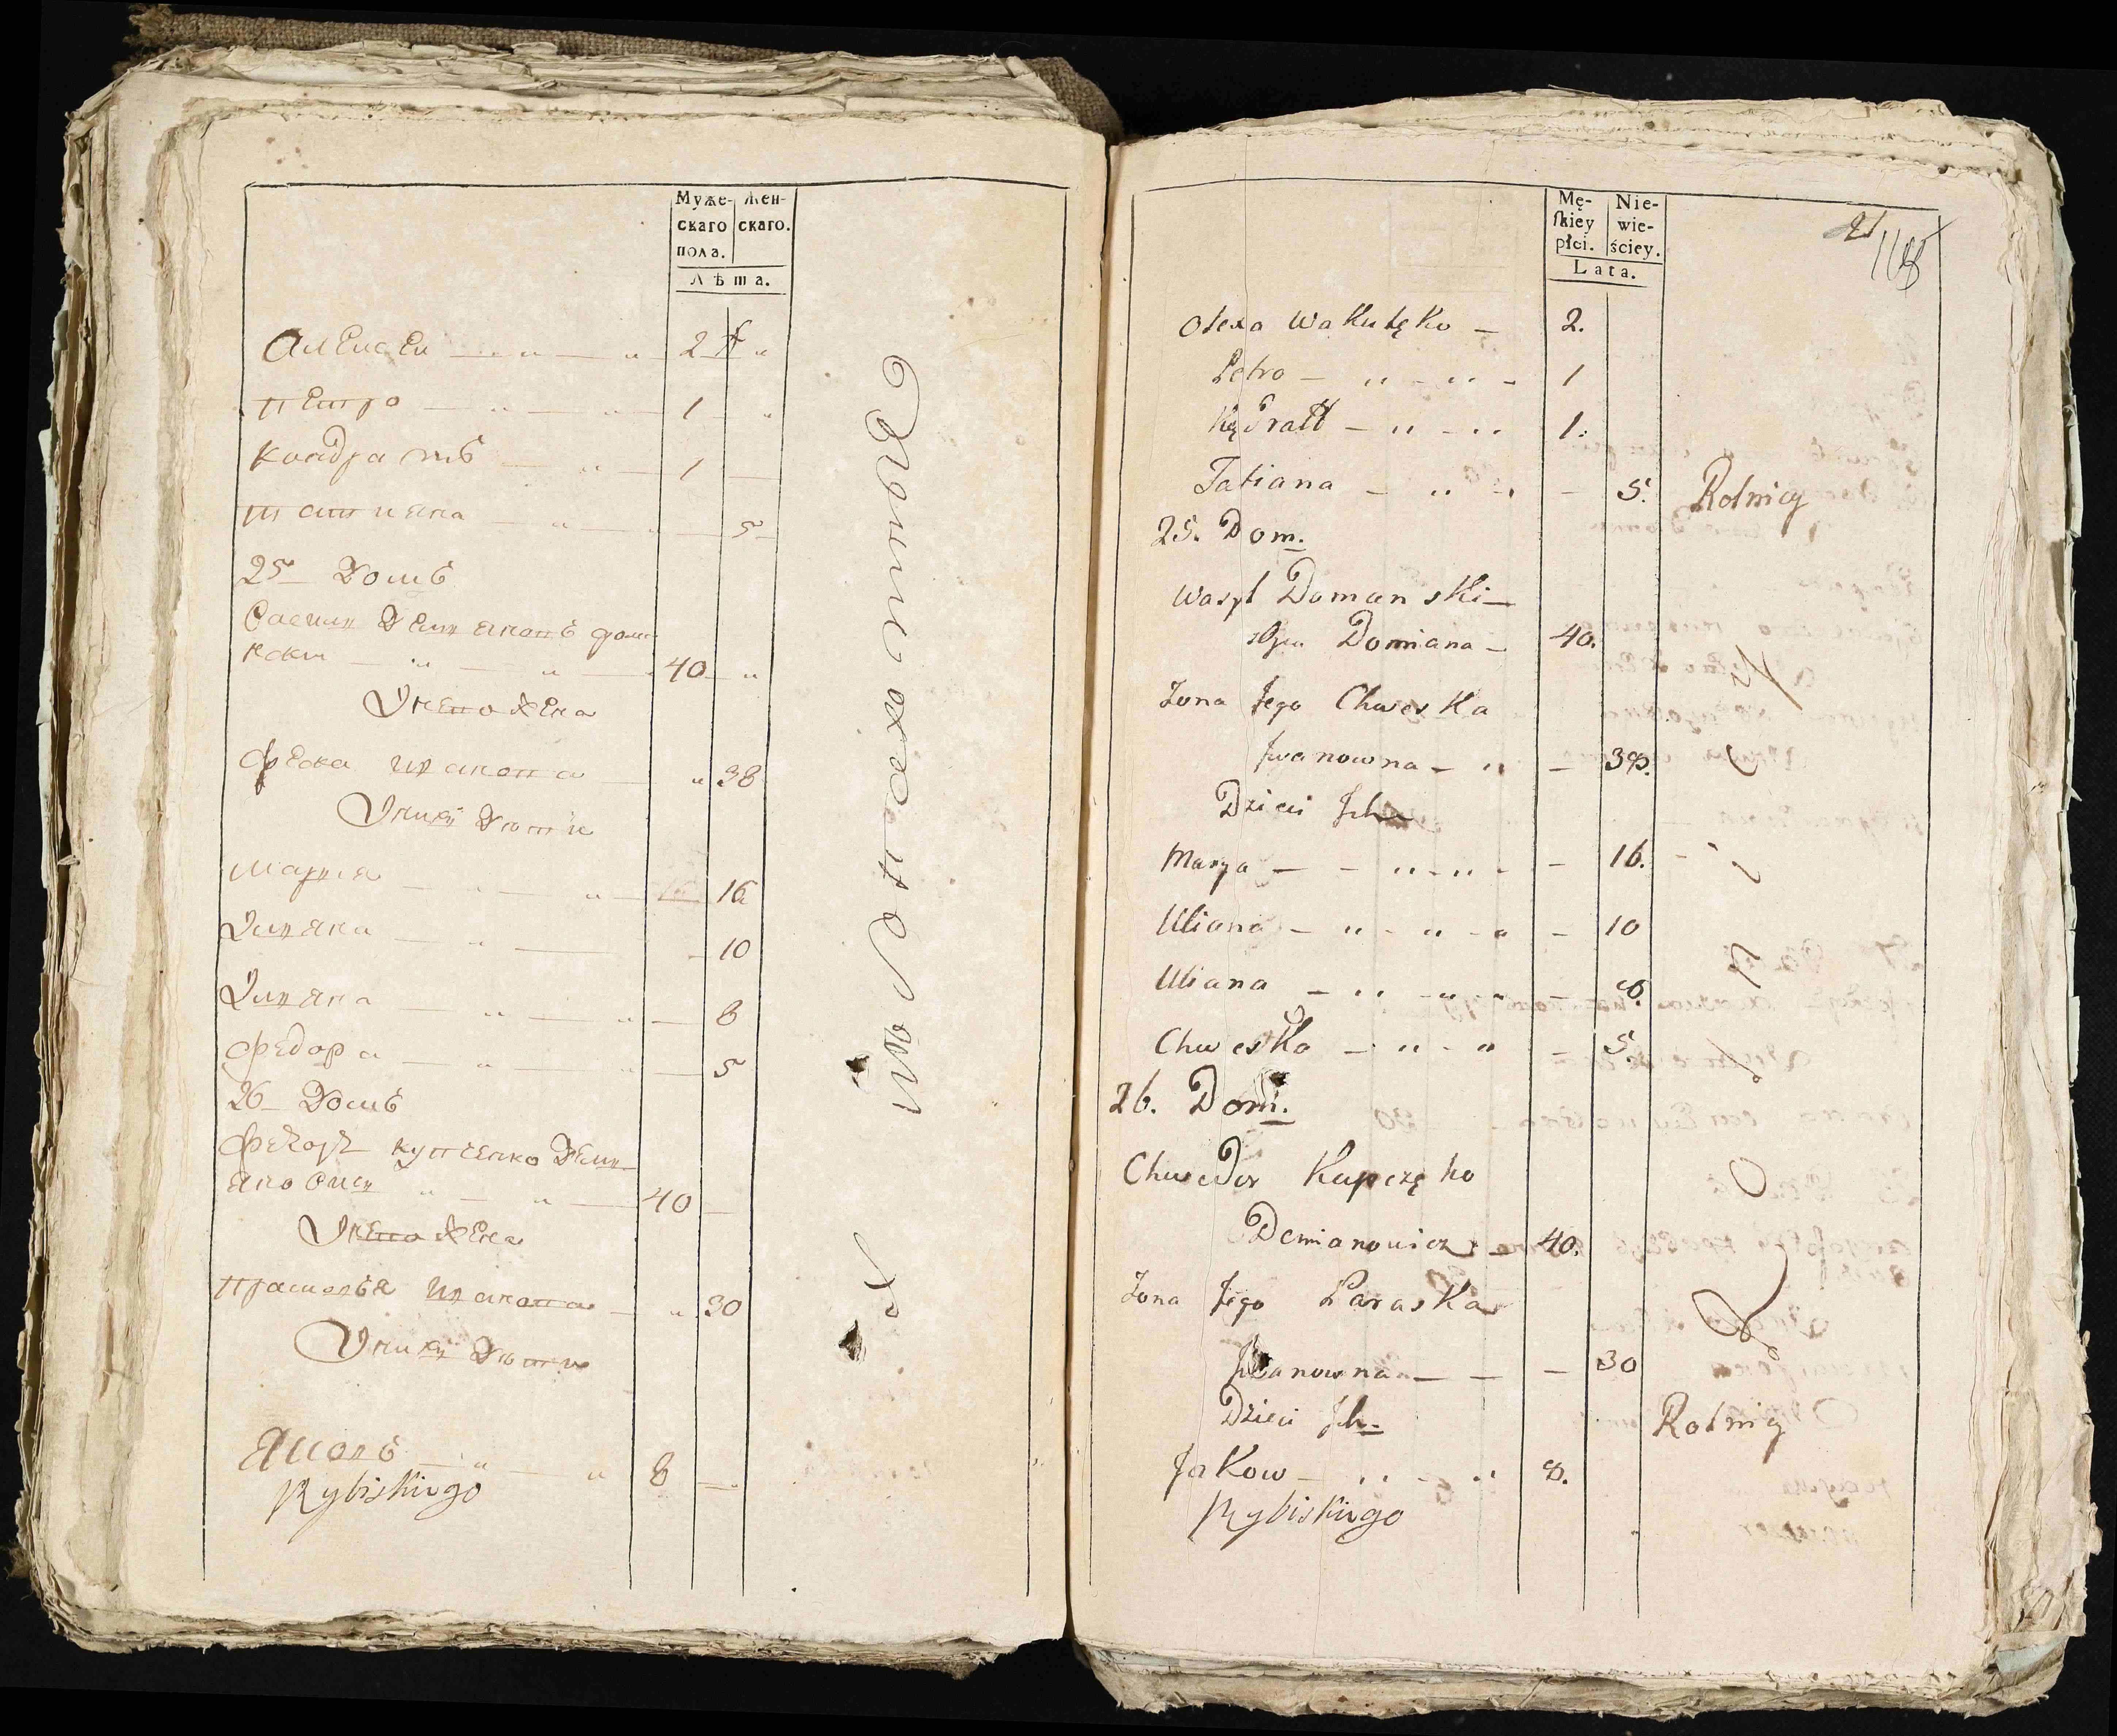 Муже-
скаго
пола.
Жен-
скаго.
Лѣта.
Алексеи 2 "
Петро 1 "
Кондратъ 1
Татияна 5
25 Домъ
Василъ Демяновъ Дома
нски 40 "
Унего жена
Феска Иванова " 38
Унихъ дѣти
Мария 16
Улияна 10
Улияна 8
Федора 5
26 Домъ
Федоръ Купченко Деми
яновичъ 40
Унего жена
Прасковья Иванова " 30
Унихъ дѣти
Яковъ " " 8
Rybiskiego
Mę-
ſkiey
płci.
Nie-
wie-
ściey.
Lata.
21
Olexa Wakulęko 2.
Petro 1
Kądratt 1.
Tatiana 5. Rolnicy
25. Dom.
Wasyl Domanski
syn Domiana 40.
Żona Jego Chweska
Iwanowna 38.
Dzieci Ich
Marya 16.
Uliana 10
Uliana 8.
Chweska 5.
26. Dom.
Chwedor Kupczęko
Demianowicz 40.
Żona Jego Paraska
Iwanowna 30
Dzieci Ich Rolnicy
Jakow 8.
Rybiskiego